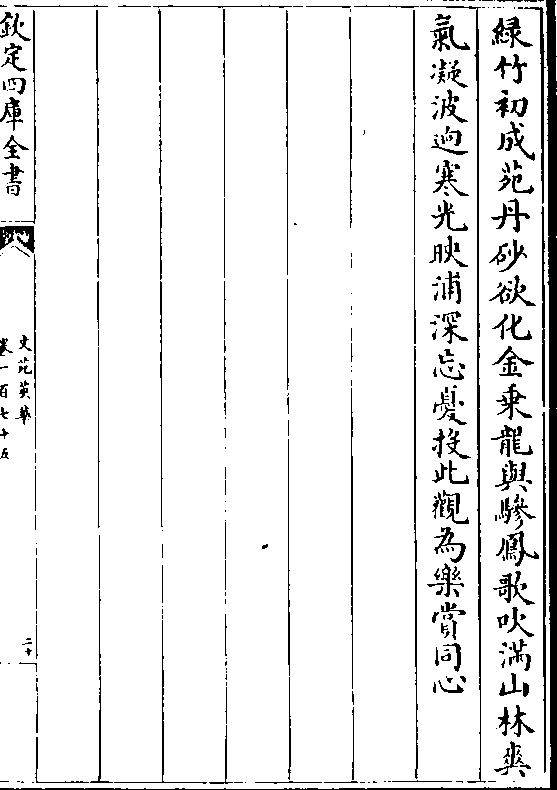 綠竹初成苑丹砂欲化金乗龍與驂鳳歌吹滿山林爽
氣凝波逈寒光映浦深忘憂投此觀為樂賞同心
欽定四庫全書
文苑英華
卷一百七十五
二十